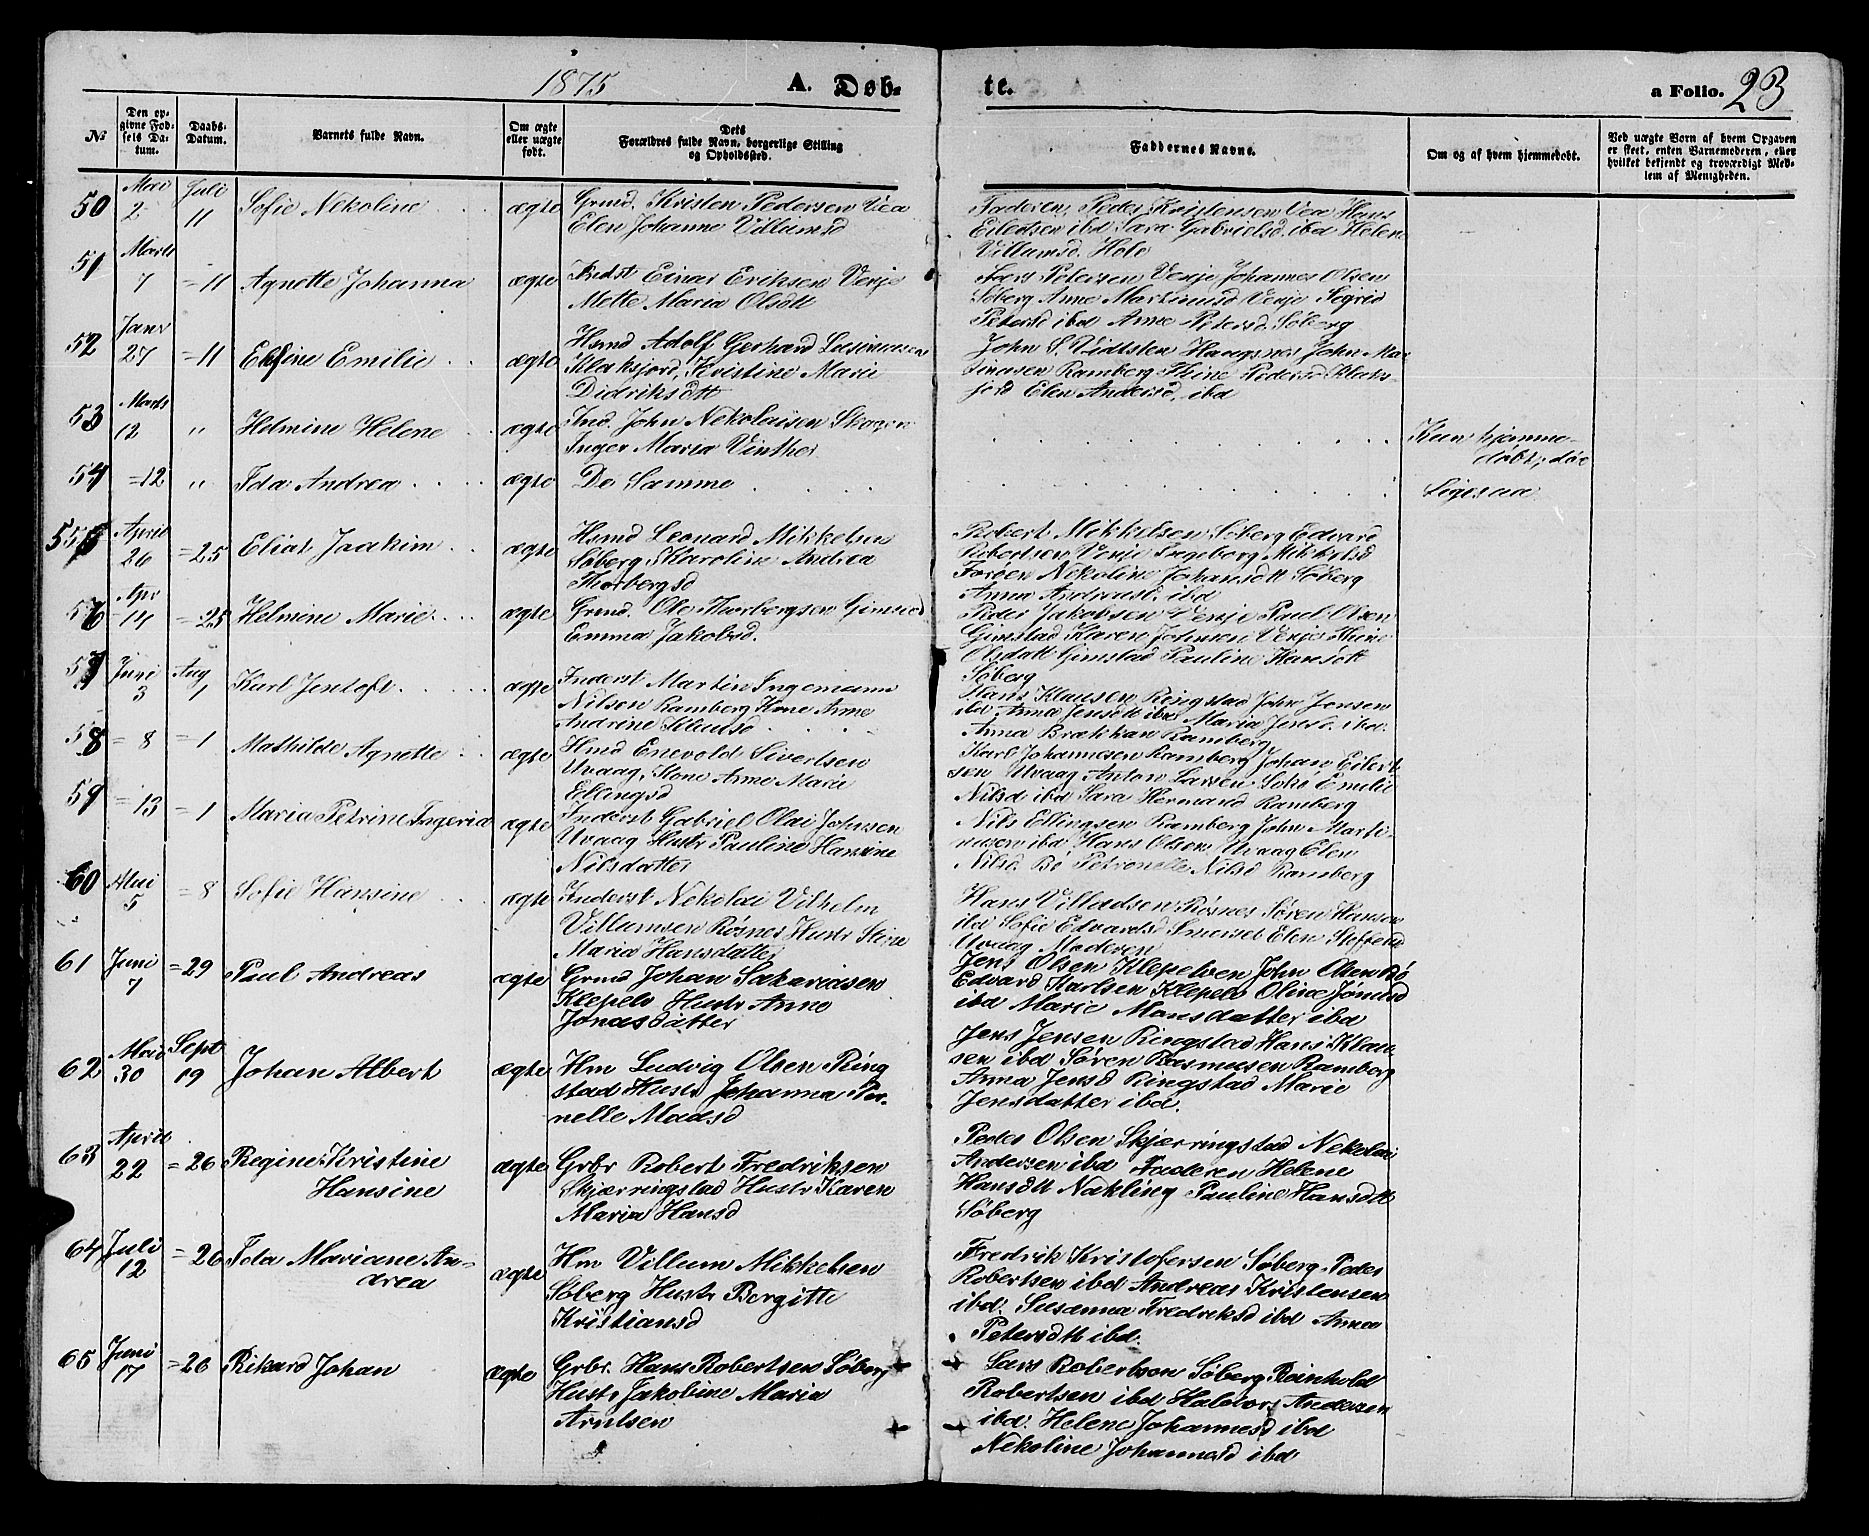 1875
A. Døb-
te.
a Folio. 23
№
Den op-
givne Fød-
sels Da-
tum.
Daabs-
Datum.
Barnets fulde Navn.
Om ægte
eller uægte
født.
Dets
Forældres fulde Navn, borgerlige Stilling
og Opholdssted.
Faddernes Navne.
Om og af hvem hjemmedøbt.
Ved uægte Børn af hvem Opgaven
er skeet, enten Barnemoderen, eller
hvilket bekjendt og troværdigt Med-
lem af Menigheden.
50 Mai 2 Juli 11 Sofie Nekoline ægte Grmd. Kristen Pedersen Vea
Elen Johanne Villumsd
Faderen, Peder Kristensen Vea Hans
Eilertsen ibd Sara Gabrielsd. ibd Helene
Villumsd. Hole
51 Marts 7 = 11 Agnette Johanna ægte Indst Einar Eriksen Verje
Mette Maria Olsdtt
Lars Petersen Verje Johannes Olsen
Søberg Anne Martinusd Verje Sigrid
Petersd ibd Anne Petersd. Søberg
52 Janr 27 = 11 Elfine Emilie ægte Hsmd Adolf Gerhard
Klaksjord, Kristine Marie
Didriksdtt
John S. Vidtsten Haugsnes John Mar
tinusen Ramberg Thine Pedersd Klaks-
jord Elen Andersd, ibd
53 Marts 12 " Helmine Helene ægte Ind. John Nekolaisen Skogen
Inger Maria Vinther
Kun hjemme-
døbt, død
54 = 12 " Ida Andrea ægte De Samme
Ligesaa
55 April 26 = 25 Elias Joakim ægte Hsmd Leonard Mikkelsen
Søberg, Karoline Andrea
Thorbergsd
Robert Mikkelsen Søberg Edvard
Robertsen Verje Ingeborg Mikkelsd
Forøen Nekoline Johansdtt Søberg
Anna Andreasd. ibd
56 Apr 14 = 25 Helmine Marie ægte Grmd. Ole Thorbergsen Gimstad
Emma Jakobsd.
Peder Jakobsen Verje Paul Olsen
Gimstad Karen Johnsen Verje Thine
Olsdatt Gimstad Pauline Hansdtt
Søberg
57 Juni 3 Aug 1 Karl Jentoft ægte Inderst Martin Ingemann
Nilsen Ramberg Kone Anne
Andrine Klausd
Hans Klausen Ringstad John Jensen
ibd Anna Jensdtt ibd Maria Jensd. ibd.
Anna Brækkan Ramberg
58 = 8 = 1 Mathilde Agnette ægte Hmd Enevold Sivertsen
Uvaag, Kone Anne Marie
Ellingsd
Karl Johannesen Ramberg Johan Eilert
sen Uvaag Anton Larsen Sokø Emilie
Nilsd ibd Sara Hermansd Ramberg
59 = 13 = 1 Maria Petrine Ingerid ægte Inderst Gabriel Olai Johnsen
Uvaag Hustr Pauline Hansine
Nilsdatter
Nils Ellingsen Ramberg John Marti-
nusen ibd Hans Olsen Uvaag Elen
Nilsd. Bø Petronelle Nilsd Ramberg
60 Mai 5 = 8 Sofie Hansine ægte Inderst Nekolai Vilhelm
Villumsen Røsnes Hustr Stine
Maria Hansdatter
Hans Villadsen Røsnes Søren Hansen
ibd Sofie Edvardsd Smorset Elen Steffensd
Uvaag Moderen
61 Juni 7 = 29 Paul Andreas ægte Grmd Johan Sakariasen
Klepelv Hustr Anne
Jonasdatter
Jens Olsen Klepelven John Olsen Bø
Edvard Karlsen Klepelv Oline Jonasd
ibd Marie Monsdatter ibd
62 Mai 30 Sept 19 Johan Albert ægte Hm Ludvig Olsen Ring
stad Hustr Johanna Per-
nelle Madsd
Jens Jensen Ringstad Hans Klau-
sen ibd Søren Rasmusen Ramberg
Anna Jensd Ringstad Marie
Jensdatter ibd.
63 April 22 = 26 Regine Kristine
Hansine ægte Grbr Robert Fredriksen
Skjærringstad Hustr Karen
Maria Hansd
Peder Olsen Skjærringstad Nekolai
Andersen ibd Faderen Helene
Hansdtt Nakling Pauline Hansdtt
Søberg
64 Juli 12 = 26 Ida Mariane An-
drea ægte Hm Villum Mikkelsen
Søberg Hustr Bergitte
Kristiansd
Fredrik Kristofersen Søberg Peder
Robertsen ibd Andreas Kristensen
ibd. Susanna Fredriksd ibd Anna
Petersdtt ibd.
65 Juni 17 = 26 Rikard Johan ægte Grbr. Hans Robertsen Søberg
Hustr Jakobine Maria
Arntsen
Lars Robertsen Søberg, Reinhold
Robertsen ibd Haldor Andersen
ibd. Helene Johannesd ibd
Nekoline Johannesd ibd